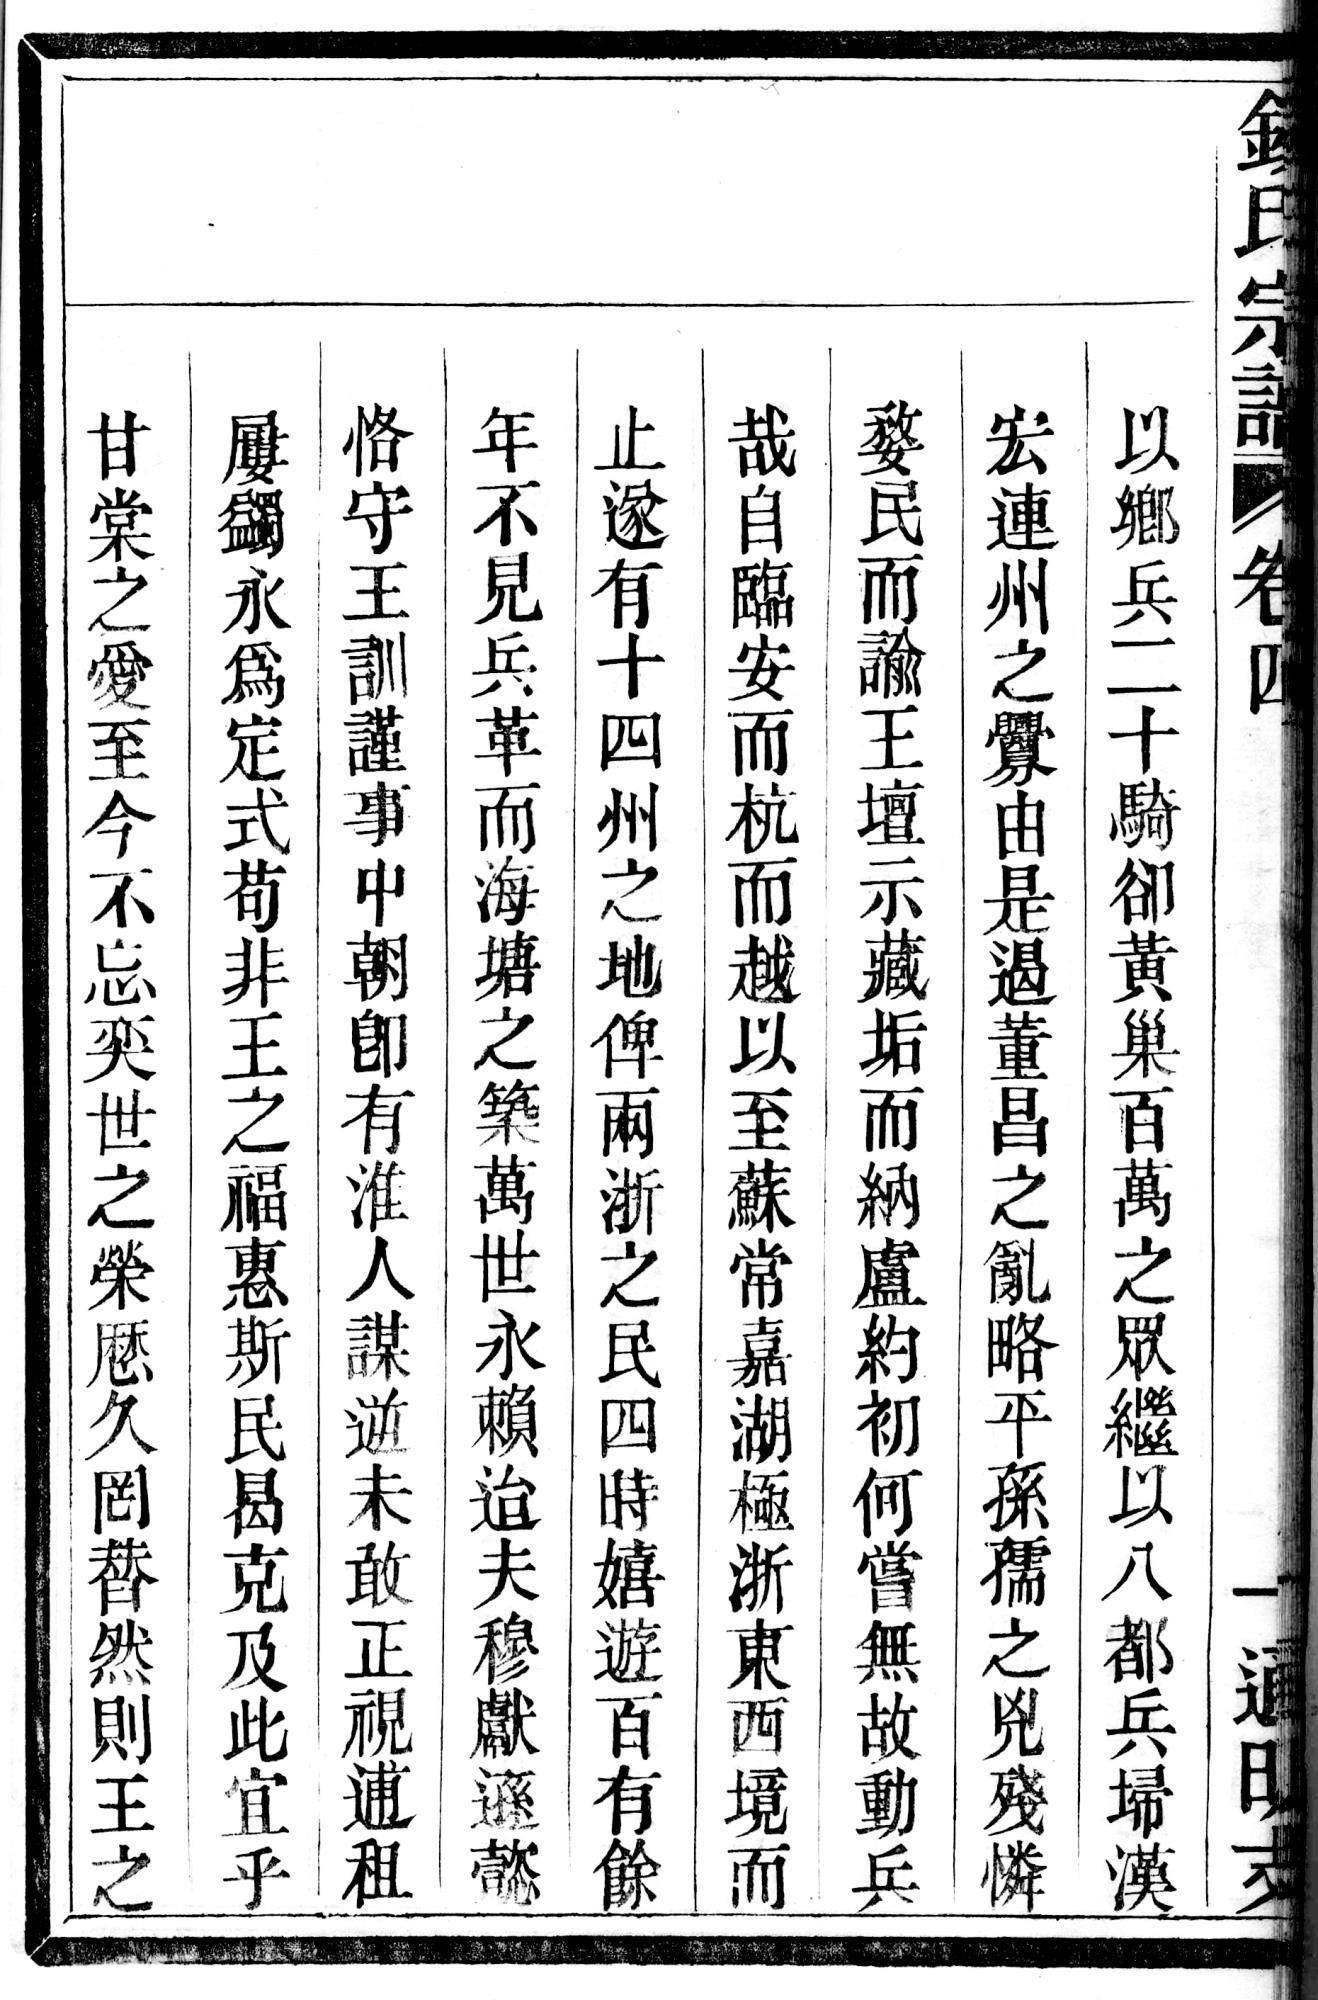 錢氏宗譜 卷四 一 通明支
以鄉兵二十騎卻黃巢百萬之眾繼以八都兵埽漢
宏連州之釁由是遏董昌之亂略平孫孺之兇殘憐
婺民而諭王壇示藏垢而納盧約初何嘗無故動兵
哉自臨安而杭而越以至蘇常嘉湖極浙東西境而
止遂有十四州之地俾兩浙之民四時嬉遊百有餘
年不見兵革而海塘之築萬世永賴迨夫穆獻遜懿
恪守王訓謹事中朝卽有淮人謀逆未敢正視逋租
屢蠲永爲定式苟非王之福惠斯民曷克及此宜乎
甘棠之愛至今不忘奕世之榮歷久罔替然則王之